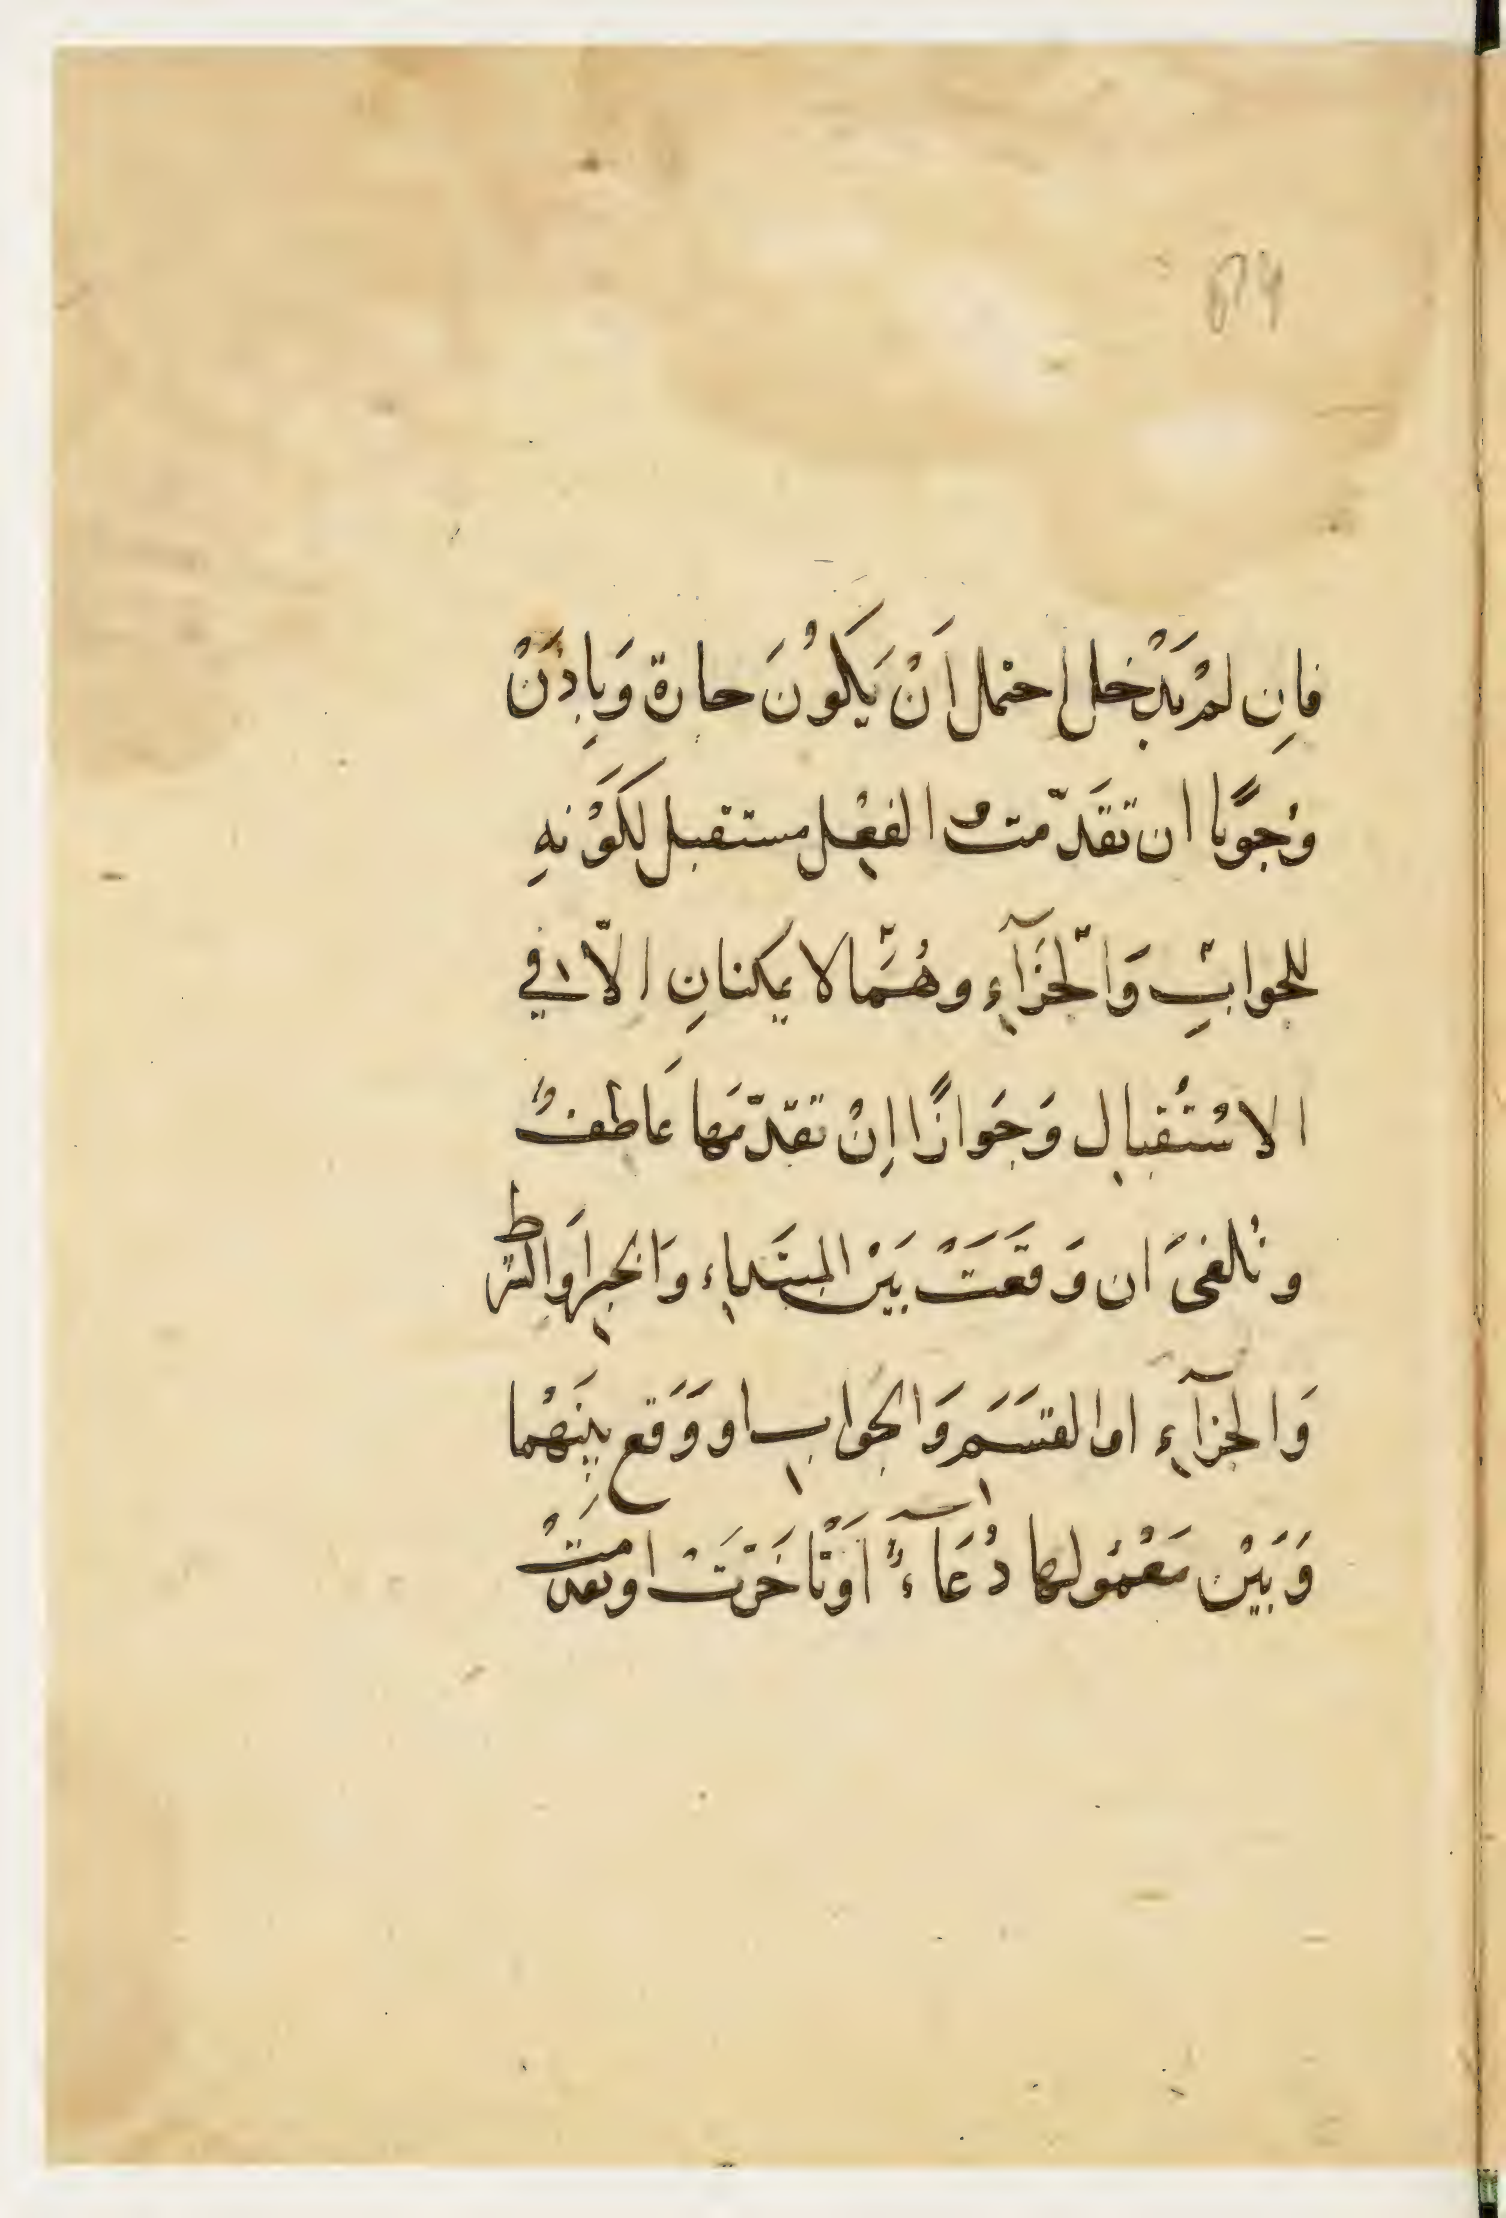 فاِن لمْ يَدْخل احتمل اَنْ يَكوُنَ حارة وَبِاِذَنْ
وُجوُبًا ان تقَدّمت و الفعْل مستقبل لكَوْنهِ
للجوابِ وَالجَزَآءِ وهُمَا لا يمكنانِ الاّ في
الاسْتُقبال وَجَوازًا اِنْ تقدّمَها عَاطفٌ
وتُلغىَ ان وَقعَتْ بَيْن المبتَداء وَالخبر اَوالشرط
وَالجزآءِ اوالقسَمَ وَالجواب او وَوَقع بينَهُما
وَبَيْن مَعْموُلها دُعَآءٌ اَوْتاخَرَتْ اوتقدمتْ